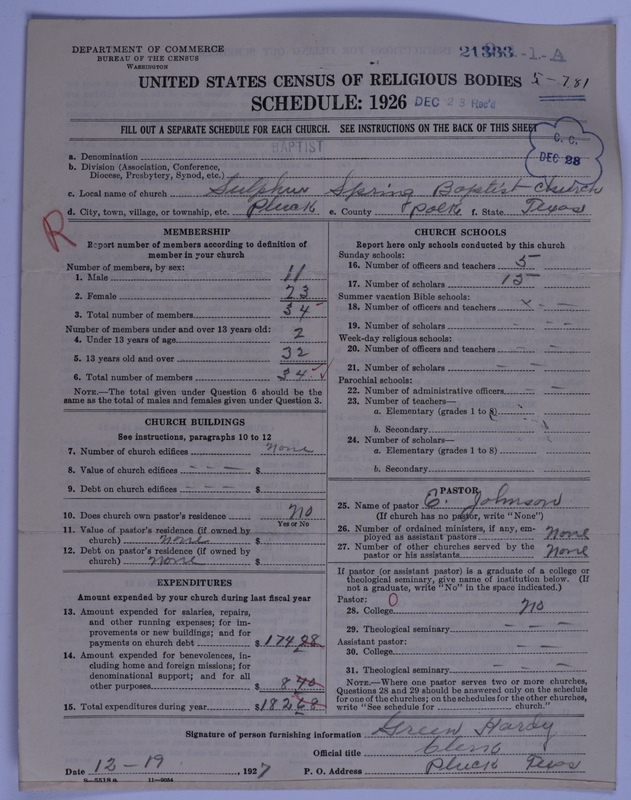 DEPARTMENT OF COMMERCE
BUREAU OF THE CENSUS
WASHINGTON
21383-1-A
UNITED STATES CENSUS OF RELIGIOUS BODIES 5-781
SCHEDULE: 1926 DEC 23 Rec'd
FILL OUT A SEPARATE SCHEDULE FOR EACH CHURCH. SEE INSTRUCTIONS ON THE BACK OF THIS SHEET
C. C.
DEC 28
BAPTIST
a. Denomination
b. Division (Association, Conference, Diocese, Presbytery, Synod, etc.)
c. Local name of church Sulphur Spring Baptist Church
d. City, town, village, or township, etc. Pluck e. County Polk f. State Texas
R
MEMBERSHIP
Report number of members according to definition of
member in your church
Number of members, by sex:
1. Male 11
2. Female 23
3. Total number of members 34
Number of members under and over 13 years old:
4. Under 13 years of age 2
5. 13 years old and over 32
6. Total number of members 34
NOTE.—The total given under Question 6 should be
same as the total of males and females given under Question 3.
CHURCH BUILDINGS
See instructions, paragraphs 10 to 12
7. Number of church edifices none
8. Value of church edifices - - - $
9. Debt on church edifices - - - $
10. Does church own pastor's residence no
Yes or No
11. Value of pastor's residence (if owned by
church) none $
12. Debt on pastor's residence (if owned by
church) none $
EXPENDITURES
Amount expended by your church during last fiscal year
13. Amount expended for salaries, repairs,
and other running expenses; for im-
provements or new buildings; and for
payments on church debt $ 174 28
14. Amount expended for benevolences, in-
cluding home and foreign missions; for
denominational support; and for all
other purposes $ 8 40
15. Total expenditures during year $ 182 68
CHURCH SCHOOLS
Report here only schools conducted by this church
Sunday schools:
16. Number of officers and teachers 5
17. Number of scholars 15
Summer vacation Bible schools:
18. Number of officers and teachers
19. Number of scholars
Week-day religious schools:
20. Number of officers and teachers
21. Number of scholars
Parochial schools:
22. Number of administrative officers
23. Number of teachers—
a. Elementary (grades 1 to 8)
b. Secondary
24. Number of scholars—
a. Elementary (grades 1 to 8)
b. Secondary
PASTOR
25. Name of pastor E. Johnson
(If church has no pastor, write "None")
26. Number of ordained ministers, if any, em-
ployed as assistant pastors none
27. Number of other churches served by the
pastor or his assistants none
If pastor (or assistant pastor) is a graduate of a college or
theological seminary, give name of institution below. (If
not a graduate, write "No" in the space indicated.)
Pastor: 0
28. College no
29. Theological seminary - - -
Assistant pastor:
30. College - -
31. Theological seminary - - -
NOTE.—Where one pastor serves two or more churches,
Questions 28 and 29 should be answered only on the schedule
for one of the churches; on the schedules for the other churches,
write "See schedule for church."
Signature of person furnishing information Green Hardy
Official title Clerk
Date 12-19, 1927 P. O. Address Pluck Texas
8-5518a 11-9084